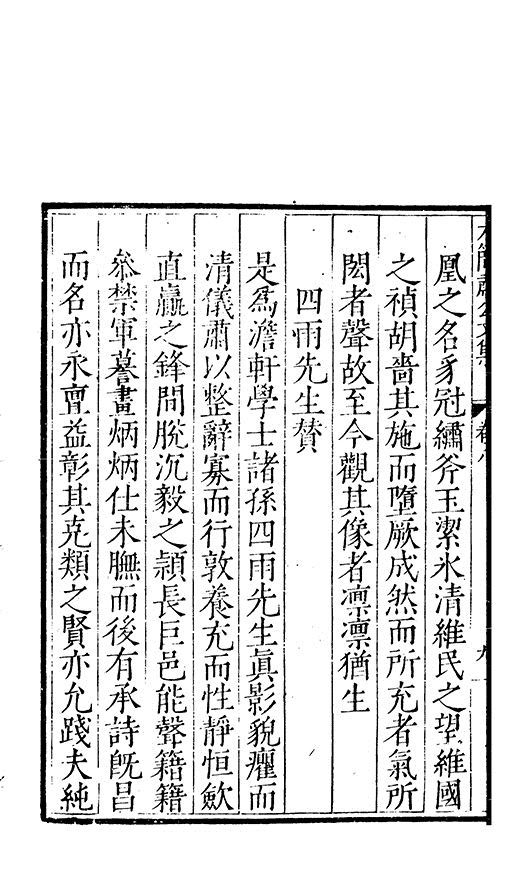 方簡肅公文集 卷八 九
凰之名豸冠繡斧玉潔氷清維民之望維國
之禎胡嗇其施而墮厥成然而所充者氣所
閎者聲故至今觀其像者凛凛猶生
四雨先生賛
是爲澹軒學士諸孫四雨先生眞影貌癯而
清儀肅以整辭寡而行敦養充而性靜恒歛
直贏之鋒間脫沉毅之頴長巨邑能聲籍籍
叅禁軍謩畫炳炳仕未膴而後有承詩旣昌
而名亦永亶益彰其克類之賢亦允踐夫純